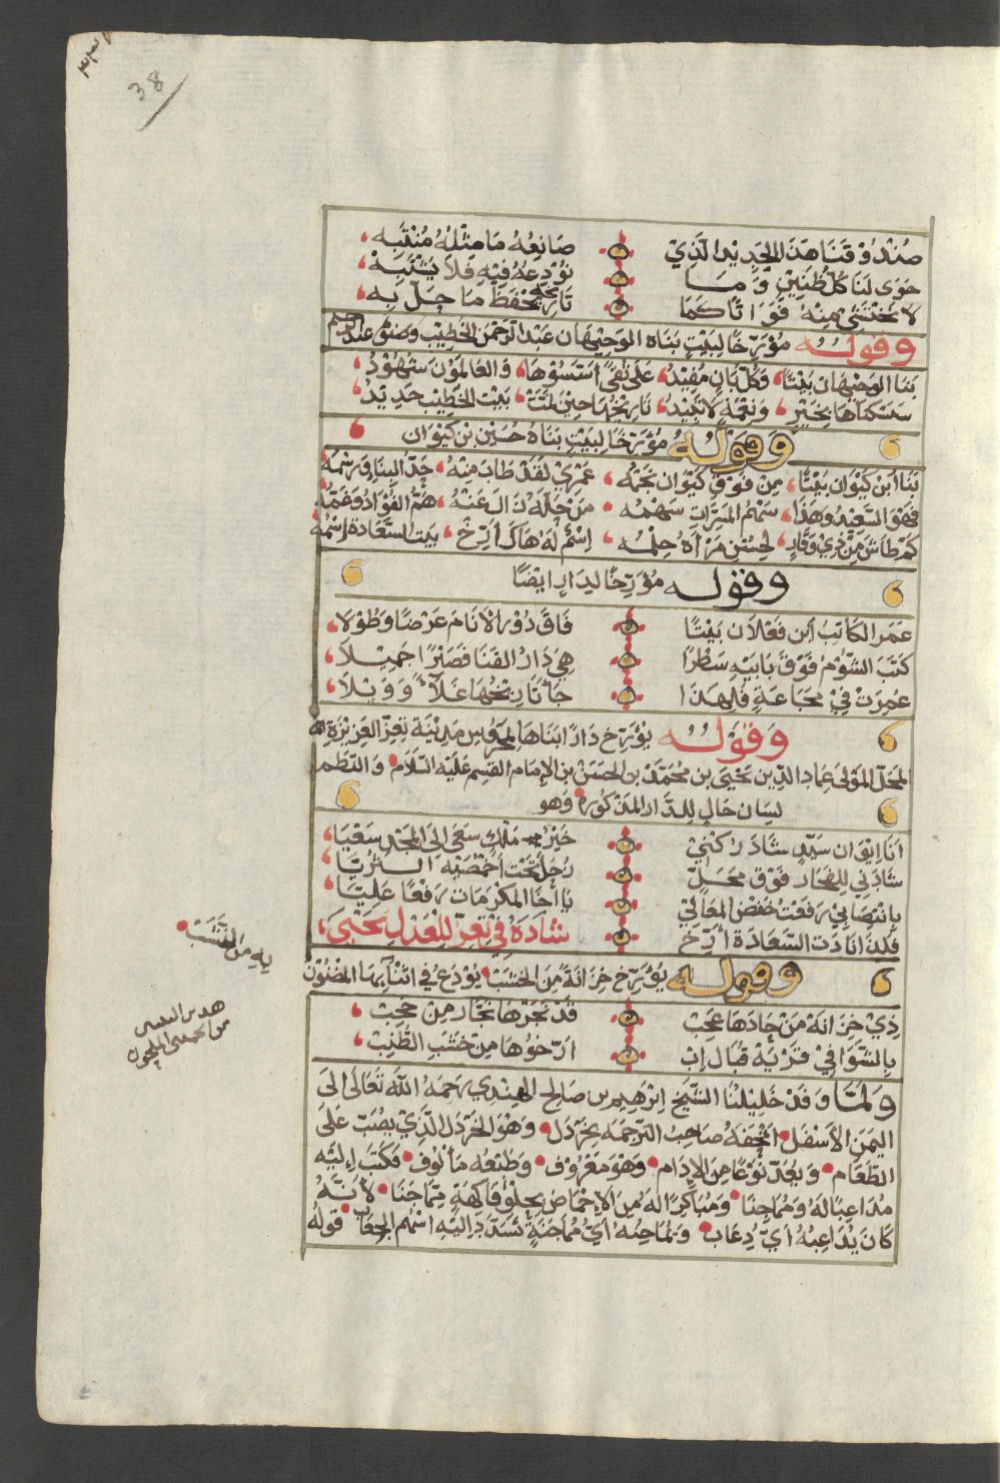 38
صُنْدُوْقُنَا هَذَا الْجَدِيْدُ الَّذِيْ صَانِعُهُ مَا مِثْلُهُ مُنْتَبِه
حَوَى لَنَا كُلَّ ظَنِيْنٍ وَمَا نُوْدِعُهُ فِيْهِ فَلَا يَشْتَبِهْ
لَا نَخْتَشِيْ مِنْهُ فَوَاتًا كَمَا تَارِيْخُهُ يَحْفَظُ مَا حَلَّ بِه
وقوله مُؤَرِّخًا لِبَيْتٍ بَنَاه الوَجِيْهَان عَبْد الرَّحْمَن الخَطِيْب وَصِنْوُه
بَنَا الوَجِيْهَانِ بَيْتًا وَكُلُّ بَانٍ مُفِيْدُ عَلَى تُقًى أَسَّسُوْهَا وَالعَالَمُوْنَ شُهُوْدُ
سَكَنَاهَا بِخَيْرٍ وَنِعْمَةٍ لَا تَبِيْدُ تَارِيْخُهَا حِيْنَ تَمَّتْ بَيْتُ الخَطِيْبِ جَدِيْدُ
وَقَوْلُهُ مُؤَرِّخًا لِبَيْتٍ بَنَاهُ حُسَيْن بْن كَيْوَان
بَنَا ابْنُ كَيْوَان بَيْتًا مِنْ فَوْقِ كَيْوَان نَجْمُه عَمْرِيْ لَقَدْ طَابَ مِنْهُ جَدُّ البِنَا وَرَسْمُهُ
فَهْوَ السَّعِيْدُ وَهَذَا سَهْمُ المَسَرَّاتِ سَهْمُه مَنْ حَلَّهُ زَالَ عَنْهُ هَمُّ الفُؤَادِ وَغَمُّهُ
كَمْ طَاشَ مِنْ ذِيْ وَقَارٍ لِحُسْنِ مَرْآهُ حِلْمُه اِسْمٌ لَهُ هَاكَ أَرِّخْ بَيْتُ السَّعَادَةِ اِسْمُهُ
وقوله مُؤَرِّخًا لِدَارٍ ايْضًا
عَمَرَ الكَاتِبُ ابْن فَعْلَان بَيْتًا فَاقَ دُوْرَ الْأَنَامِ عَرْضًا وَطُوْلَا
كَتَبَ الشُّؤْمُ فَوْقَ بَابَيْهِ سَطْرًا هِيَ دَارُ الفَنَا فَصَبْرًا جَمِيْلَا
عُمِرَتْ فِيْ مَجَاعَةٍ فَلِهَذَا جَا تَارِيْخُهَا غَلَاءً وَوَيْلَا
وقوله يُؤَرِّخ دَارًا ابتَنَاهَا بِمَحْرُوْسِ مَدِيْنَة تَعِزّ العَزِيْزَة
المَحَلّ المَوْلَى عِمَاد الدِّيْن يَحْيَى بن مُحَمَّد بن الحَسَن بن الإِمَام القٰسِم عَلَيْه السَّلَام وَالنَّظْم
لِسَان حَالٍ لِلدَّارِ المَذْكُورَة وَهو
أَنَا اِيْوَان سَيِّدٍ شَادَ رُكْنِيْ خَيْرُ مَلْكٍ سَعَى إِلَى المَجْدِ سَعْيَا
شَادَنِي لِلْفَخَارِ فَوْقَ مَحَلٍّ رَجُلٌ تَحْتَ أَخْمَصَيْهِ الثُّرَيَّا
بِانْتِصَابِيْ رَفَعْتَ خَفْضَ المَعَالِيْ يَا أَخَا المَكْرُمَاتِ رَفْعًا عَلِيَّا
فَلِذَا نَادَتِ السَّعَادَةُ أَرِّخْ شَادَهُ فِي تَعِزّ لِلْعَدْلِ يَحْيَى
وقوله يُؤَرِّخ خِزَانَةً مِنَ الخَشَبِ يُوْدَعُ فِي اثْنَائِهَا المَضْنُوْن
بِهِ مِنَ القَشَبْ
ذِيْ خِزَانَةْ مَنْ جَادَهَا عَجِبْ قَدْ نَجَرْهَا نَجَّار مِنْ حَجِبْ
بِالسَّوَا فِيْ قَرْيَةْ قُبَال إِبْ ارّخُوْهَا مِنْ خَشَبِ الطُّنِبْ
وَلَمَّا وَفَدَ خَلِيْلُنَا الشَّيْخ اِبْرٰهِيْم بن صَالِح الهِنْدِي رَحِمَهُ اللّٰهُ تَعَالَى إِلَى
اليَمَنِ الأَسْفَلِ أَتْحَفَهُ صَاحِبُ التَّرْجَمَة بِخَرْدَل وَهُوَ الخَرْدَلُ الَّذِيْ يُصَبُّ عَلَى
الطَّعَام وَيُعَدُّ نَوْعًا مِنَ الإِدَام وَهُوَ مَعْرُوْف وَطَبْعُه مَأْلُوْف فَكَتَبَ إِلَيْه
مُدَاعِبًا لَهُ وَمُمَاجِنًا وَمُبَاكِرًا لَه مِنَ الإِحْمَاضِ بِحُلْوِ فَاكِهَةٍ مِمَّا جَنَا لِأَنَّهُ
كَانَ يُدَاعِبُهُ أَيَّ دِعَاب وَيُمَاجِنُه أَيَّ مُمَاجَنَةٍ تُسَدَّدُ إِلَيْهِ اسْهُمُ الجِعَاب قوله